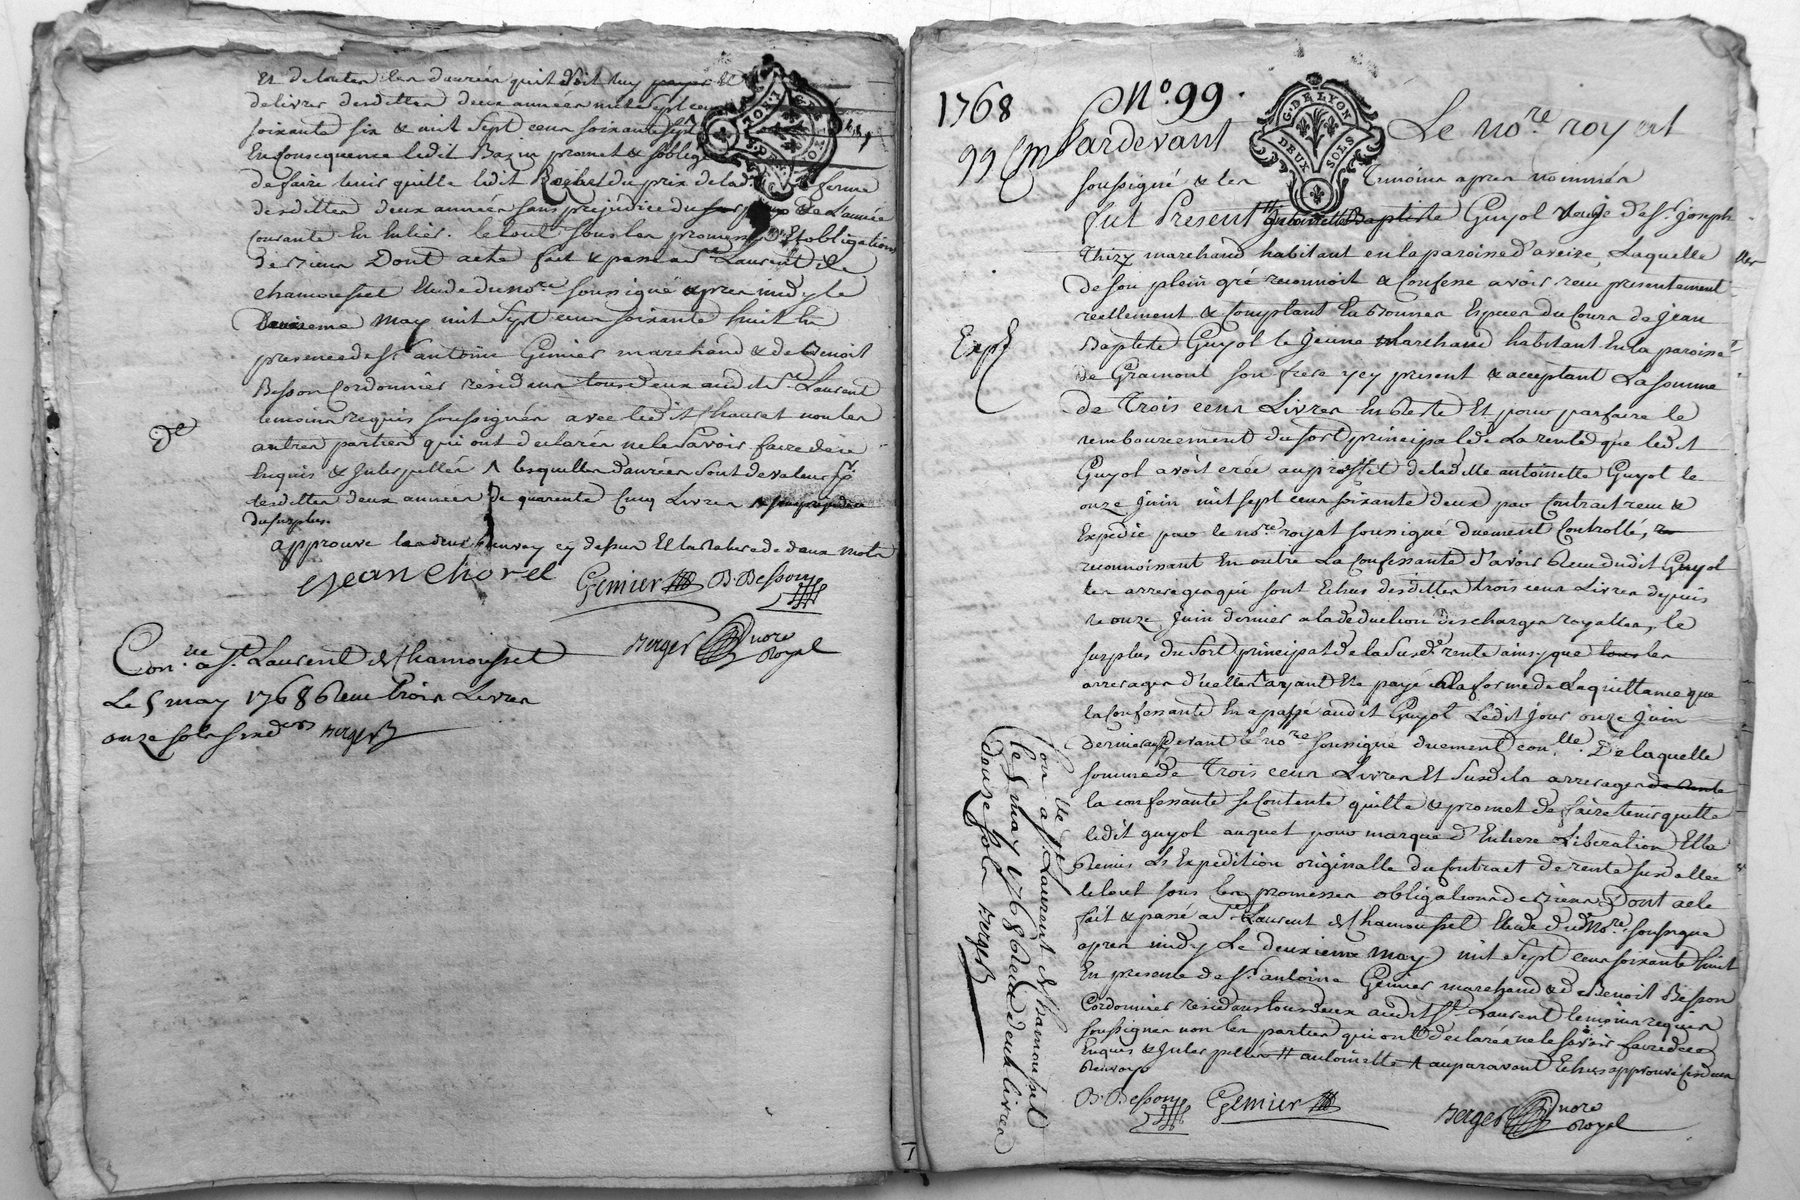 Et de toutes les danrées qu'il doit luy payer et
delivrer desdittes deux années mil sept cent
soixante six & mil sept cens soixante sept
En consequence ledit Bazin promet & s'oblige
de faire tenir quitte ledit du prix de lad. ferme
desdittes deux années sans prejudice du de l'année
courante En Entier. le tout sous les promesses Et obligations
de biens Dont acte fait & passé a St Laurent de
chamousset Etude du nore soussigné apres midy le
deuxieme may mil sept cens soixante huit En
presence de sr antoine Genier marchand & de Benoit
Besson Cordonnier residens tous deux audit St Laurent
temoins requis soussignés avec ledit non les
autres parties qui ont declarés ne le sçavoir faire de ce
Enquis & Interpellés lesquelles danrées sont de valeur pr
lesdittes deux années de quarente Cinq Livres
du surplus.
approuvé les deux renvoy cy dessus Et la rature de deux mots
Jean Chorel Genier B. Besson
Berger nore Royal
Conlle a St Laurent de Chamousset
Le 5 may 1768 Reçu trois Livres
onze sols six drs Berger
1768 No. 99.
99 Pardevant Le nore royal
G. DE LYON
DEUX SOLS
soussigné & les temoins apres nommés
fut Present Baptiste Guyol veuve de sr joseph
Thizy marchand habitant en la paroisse d'aveize, Laquelle
de son plein gré reconnoit & Confesse avoir reçu presentement
reellement & Comptant En bonnes Especes du Cours de jean
Expé
Baptiste Guyol le jeune marchand habitant En la paroisse
de Gramont son frere icy present & acceptant La somme
de trois cens Livres En Reste Et pour parfaire le
remboursement du sort principal de La rente que ledit
Guyol avoit crée au proffit de laditte antoinette Guyol le
onze juin mil sept cens soixante deux par Contrait reçu &
Expedié par le nore royal soussigné duement Controllé,
reconnoissant En outre La Confessante d'avoir Reçu dudit Guyol
les arrerages qui sont Echus desdittes trois cens Livres depuis
le onze juin dernier a la deduction des charges royalles, le
surplus du sort principal de la susde rente ainsy que les
arrerages d'icelles ayant Eté payé a la forme de La quittance que
la Confessante En a passé audit Guyol Ledit jour onze juin
dernier pardevant le nore soussigné duement conlle. De laquelle
somme de Trois cens Livres Et susdits arrerages
la confessante se Contente quitte & promet de faire tenir quitte
ledit guyol auquel pour marque d'Entiere Liberation Elle a
Remis L'Expedition originalle du Contract de rente susdatté
le tout sous les promesses obligations de biens Dont acte
fait & passé a St Laurent de Chamousset Etude du nore soussigné
apres midy Le deuxieme may mil sept cens soixante huit
En presence de sr antoine Genier marchand & de Benoit Besson
Cordonnier residans tous deux audit St Laurent temoins requis
soussignés non les parties qui ont declarés ne le sçavoir faire de ce
Enquis & Interpellés antoinette auparavant Echus approuvé les deux
Renvoys
B. Besson Genier Berger nore Royal
Conlle a St Laurent de Chamousset
le 5 may 1768 Reçu deux livres
douze sols Berger
7